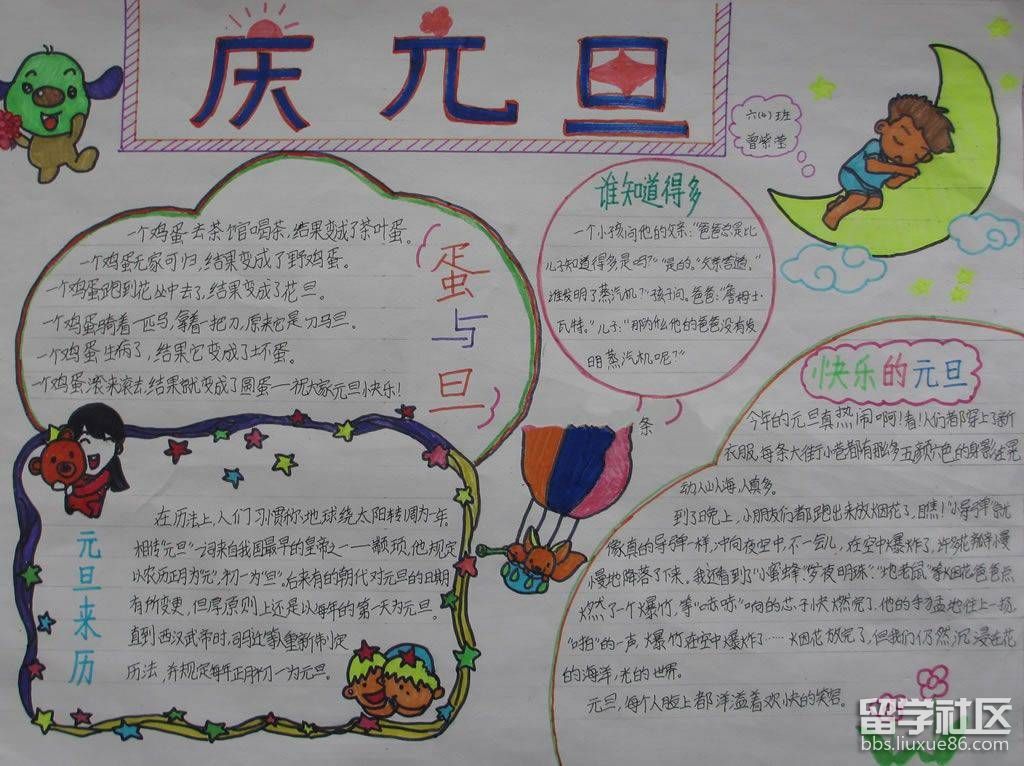 庆元旦
六(4)班
曾紫莹
一个鸡蛋去茶馆喝茶,结果变成了茶叶蛋。
一个鸡蛋无家可归,结果变成了野鸡蛋。
一个鸡蛋跑到花丛中去了,结果变成了花旦。
一个鸡蛋骑着一匹马,拿着一把刀,原来它是刀马旦。
一个鸡蛋生病了,结果它变成了坏蛋。
一个鸡蛋滚来滚去,结果就变成了圆蛋——祝大家元旦快乐!
蛋与旦
谁知道得多
一个小孩问他的父亲:"爸爸总是比
儿子知道得多是吗?""是的。"父亲答道。"
谁发明了蒸汽机?"孩子问。爸爸:"詹姆士·
瓦特。"儿子:"那为什么他的爸爸没有发
明蒸汽机呢?"
条
元旦来历
在历法上,人们习惯称地球绕太阳转一周为一年。
相传"元旦"一词来自我国最早的皇帝之一——颛顼,他规定
以农历正月为"元",初一为"旦"。后来有的朝代对元旦的日期
有所变更,但原则上还是以每年的第一天为元旦。
直到西汉武帝时,司马迁等重新制定
历法,并规定每年正月初一为元旦。
快乐的元旦
今年的元旦真热闹啊!看!人们都穿上了新
衣服,每条大街小巷都有那多五颜六色的身影在晃
动人山人海,人真多。
到了晚上,小朋友们都跑出来放烟花了,瞧!"小导弹"就
像真的导弹一样,冲向夜空中,不一会儿,在空中爆炸了,许多花瓣慢
慢地降落了下来,我还看到了"小蜜蜂""夜明珠""地老鼠"等烟花爸爸点
燃了一个爆竹,等"咝咝"响的芯子快燃完了,他的手猛地往上一扬,
"啪"的一声,爆竹在空中爆炸了……烟花放完了,但我们仍然沉浸在花
的海洋,光的世界。
元旦,每个人脸上都洋溢着欢快的笑容。
留学社区
bbs.liuxue86.com